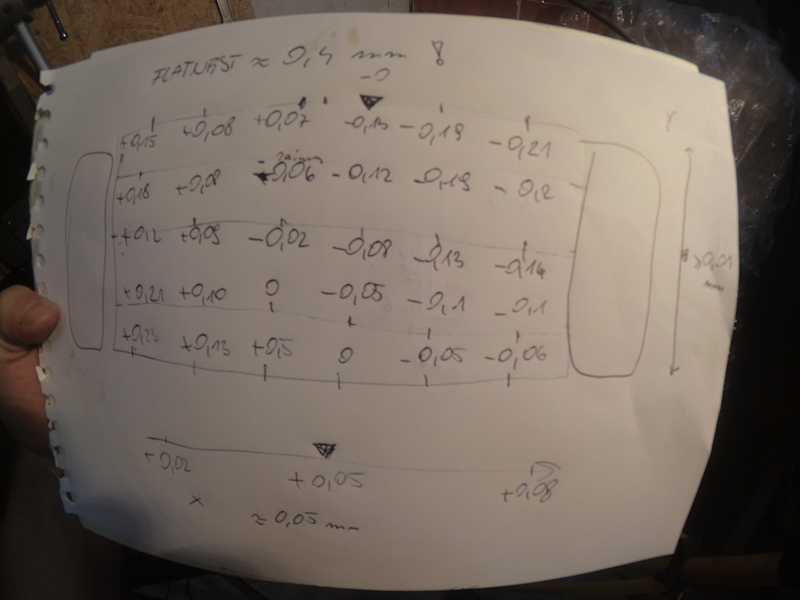 FLATNESS ≈ 0,4 mm !
-0
+0,15 +0,08 +0,07 -0,15 -0,19 -0,21
+0,18 +0,08 0,06 -0,12 -0,19 -0,2
+0,2 +0,09 -0,02 -0,08 -0,13 -0,14
+0,21 +0,10 0 -0,05 -0,1 -0,1
+0,23 +0,13 +0,5 0 -0,05 -0,06
Y
0,01
mm
+0,02 +0,05 +0,08
X
≈ 0,05 mm